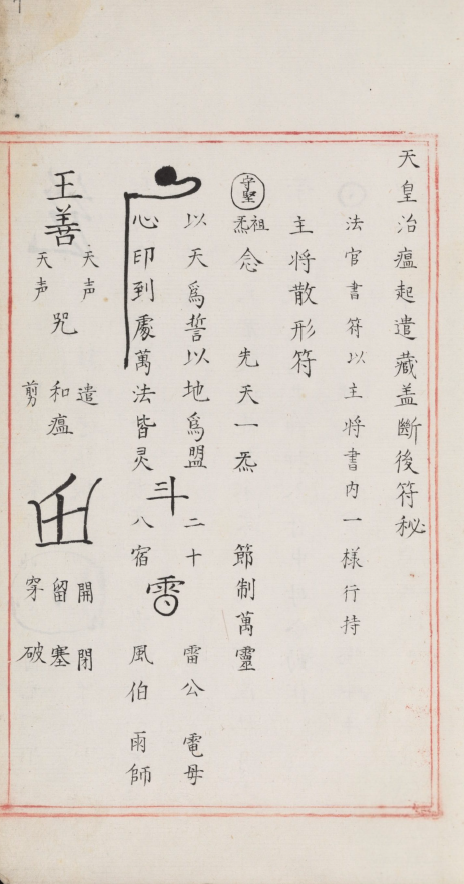 天皇治瘟起遣藏盖斷後符秘
法官書符以主將書内一樣行持
主將散形符
守堅
祖炁念 先天一炁 節制萬靈
以天爲誓以地爲盟 二十 雷公 電母
心印到處萬法皆灵 八宿 風伯 雨師
斗
雷
王善
天声 天声 咒
遣 和瘟 剪
開 留 穿
閉 塞 破